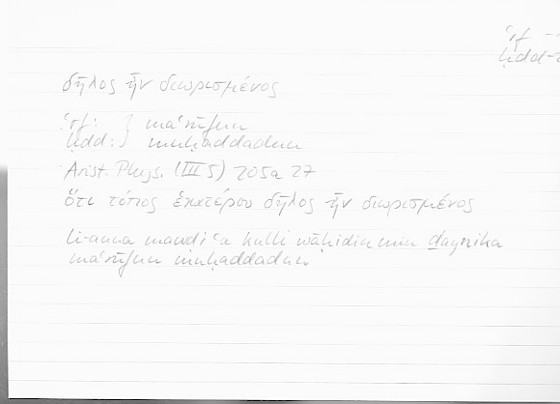 ʿrf -
ḥdd-
δῆλος ἦν διωρισμένος
ʿrf: } maʿrūfun
ḥdd: } muḥaddadun
Arist. Phys. (III 5) 205a 27
ὅτι τόπος ἑκατέρου δῆλος ἦν διωρισμένος
li-anna mawḍiʿa kulli wāḥidin min ḏaynika
maʿrūfun muḥaddadun